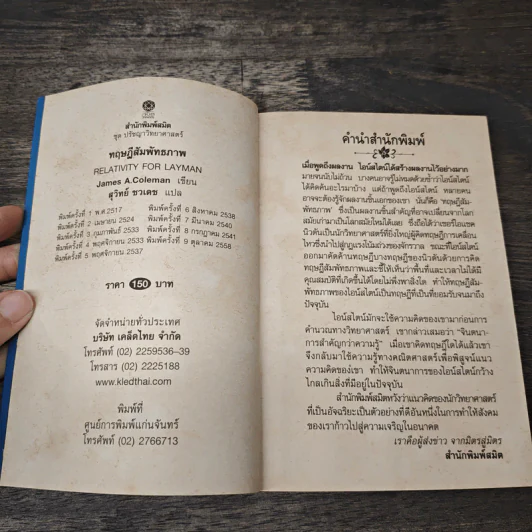 สำนักพิมพ์สมิต
ชุด ปรัชญาวิทยาศาสตร์
ทฤษฎีสัมพัทธภาพ
RELATIVITY FOR LAYMAN
James A.Coleman เขียน
สุวิทย์ ชวเดช แปล
พิมพ์ครั้งที่ 1 พ.ศ.2517
พิมพ์ครั้งที่ 2 เมษายน 2524
พิมพ์ครั้งที่ 3 กุมภาพันธ์ 2533
พิมพ์ครั้งที่ 4 พฤศจิกายน 2533
พิมพ์ครั้งที่ 5 พฤศจิกายน 2537
พิมพ์ครั้งที่ 6 สิงหาคม 2538
พิมพ์ครั้งที่ 7 มีนาคม 2540
พิมพ์ครั้งที่ 8 กรกฎาคม 2541
พิมพ์ครั้งที่ 9 ตุลาคม 2558
ราคา 150 บาท
จัดจำหน่ายทั่วประเทศ
บริษัท เคล็ดไทย จำกัด
โทรศัพท์ (02) 2259536-39
โทรสาร (02) 2225188
www.kledthai.com
พิมพ์ที่
ศูนย์การพิมพ์แก่นจันทร์
โทรศัพท์ (02) 2766713
คำนำสำนักพิมพ์
เมื่อพูดถึงผลงาน ไอน์สไตน์ได้สร้างผลงานไว้อย่างมาก
มายจนนับไม่ถ้วน บางคนอาจรู้ไม่หมดด้วยซ้ำว่าไอน์สไตน์
ได้คิดค้นอะไรมาบ้าง แต่ถ้าพูดถึงไอน์สไตน์ หลายคน
อาจจะต้องรู้จักผลงานชิ้นเอกของเขา นั่นก็คือ 'ทฤษฎีสัม-
พัทธภาพ' ซึ่งเป็นผลงานชิ้นสำคัญที่อาจเปลี่ยนจากโลก
สมัยเก่ามาเป็นโลกสมัยใหม่ได้เลย ซึ่งถือได้ว่าเซอร์ไอแซค
นิวตันเป็นนักวิทยาศาสตร์ที่ยิ่งใหญ่ผู้คิดทฤษฎีการเคลื่อน
ไหวซึ่งนำไปสู่กฎแรงโน้มถ่วงของจักรวาล ขณะที่ไอน์สไตน์
ออกมาคัดค้านทฤษฎีบางทฤษฎีของนิวตันด้วยการคิด
ทฤษฎีสัมพัทธภาพและชี้ให้เห็นว่าพื้นที่และเวลาไม่ได้มี
คุณสมบัติที่เกิดขึ้นได้โดยไม่พึ่งพาสิ่งใด ทำให้ทฤษฎีสัม-
พัทธภาพของไอน์สไตน์เป็นทฤษฎีที่เป็นที่ยอมรับจนมาถึง
ปัจจุบัน
ไอน์สไตน์มักจะใช้ความคิดของเขามาก่อนการ
คำนวณทางวิทยาศาสตร์ เขากล่าวเสมอว่า "จินตนา-
การสำคัญกว่าความรู้" เมื่อเขาคิดทฤษฎีใดได้แล้วเขา
จึงกลับมาใช้ความรู้ทางคณิตศาสตร์เพื่อพิสูจน์แนว
ความคิดของเขา ทำให้จินตนาการของไอน์สไตน์กว้าง
ไกลเกินสิ่งที่มีอยู่ในปัจจุบัน
สำนักพิมพ์สมิตหวังว่าแนวคิดของนักวิทยาศาสตร์
ที่เป็นอัจฉริยะเป็นตัวอย่างที่ดีอันหนึ่งในการทำให้สังคม
ของเราก้าวไปสู่ความเจริญในอนาคต
เราคือผู้ส่งข่าว จากมิตรสู่มิตร
สำนักพิมพ์สมิต